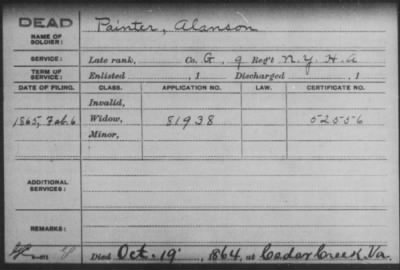 DEAD
NAME OF SOLDIER: Painter, Alanson
SERVICE: Late rank, Co. G, 9 Reg't N.Y. H.A
TERM OF SERVICE: Enlisted , 1 Discharged , 1
DATE OF FILING. CLASS. APPLICATION NO. LAW. CERTIFICATE NO.
Invalid,
1865, Feb. 6 Widow, 81938 52556
Minor,
ADDITIONAL SERVICES:
REMARKS:
Died Oct. 19, 1864, at Cedar Creek, Va.